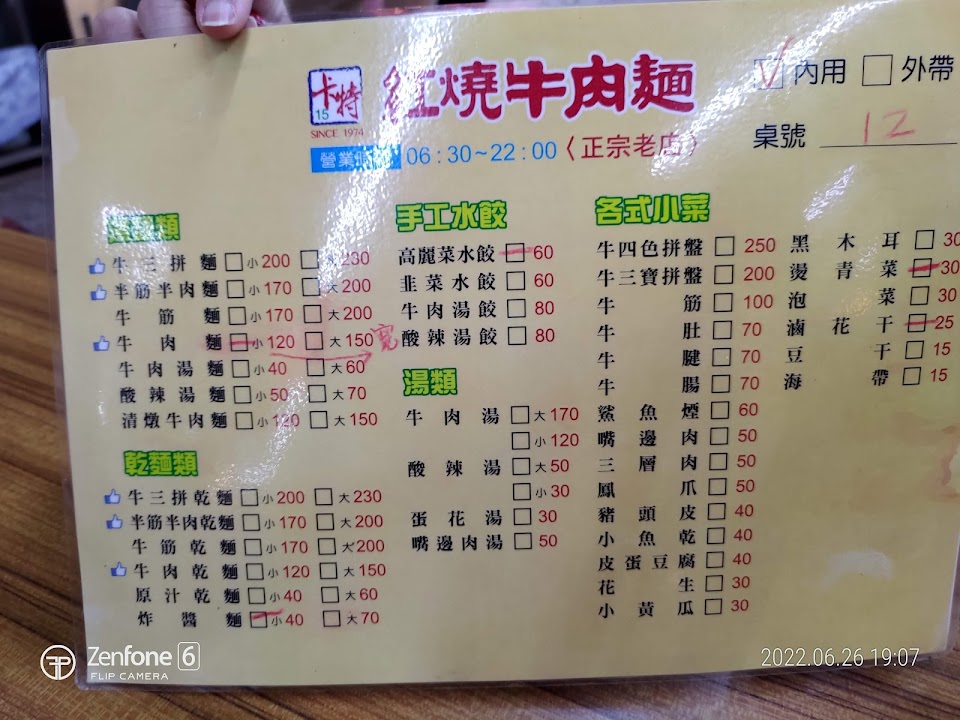 卡特
15
SINCE 1974
紅燒牛肉麵
☑內用 □外帶
營業時間 06:30~22:00〈正宗老店〉
桌號 12
湯麵類
牛三拼麵 □小200 □大230
半筋半肉麵 □小170 □大200
牛筋麵 □小170 □大200
牛肉麵 □小120 □大150 寬
牛肉湯麵 □小40 □大60
酸辣湯麵 □小50 □大70
清燉牛肉麵 □小120 □大150
乾麵類
牛三拼乾麵 □小200 □大230
半筋半肉乾麵 □小170 □大200
牛筋乾麵 □小170 □大200
牛肉乾麵 □小120 □大150
原汁乾麵 □小40 □大60
炸醬麵 □小40 □大70
手工水餃
高麗菜水餃 □60
韭菜水餃 □60
牛肉湯餃 □80
酸辣湯餃 □80
湯類
牛肉湯 □大170
□小120
酸辣湯 □大50
□小30
蛋花湯 □30
嘴邊肉湯 □50
各式小菜
牛四色拼盤 □250
牛三寶拼盤 □200
牛筋 □100
牛肚 □70
牛腱 □70
牛腸 □70
鯊魚煙 □60
嘴邊肉 □50
三層肉 □50
鳳爪 □50
豬頭皮 □40
小魚乾 □40
皮蛋豆腐 □40
花生 □30
小黃瓜 □30
黑木耳 □30
燙青菜 □30
泡菜 □30
滷花干 □25
豆干 □15
海帶 □15
Zenfone 6
FLIP CAMERA
2022.06.26 19:07